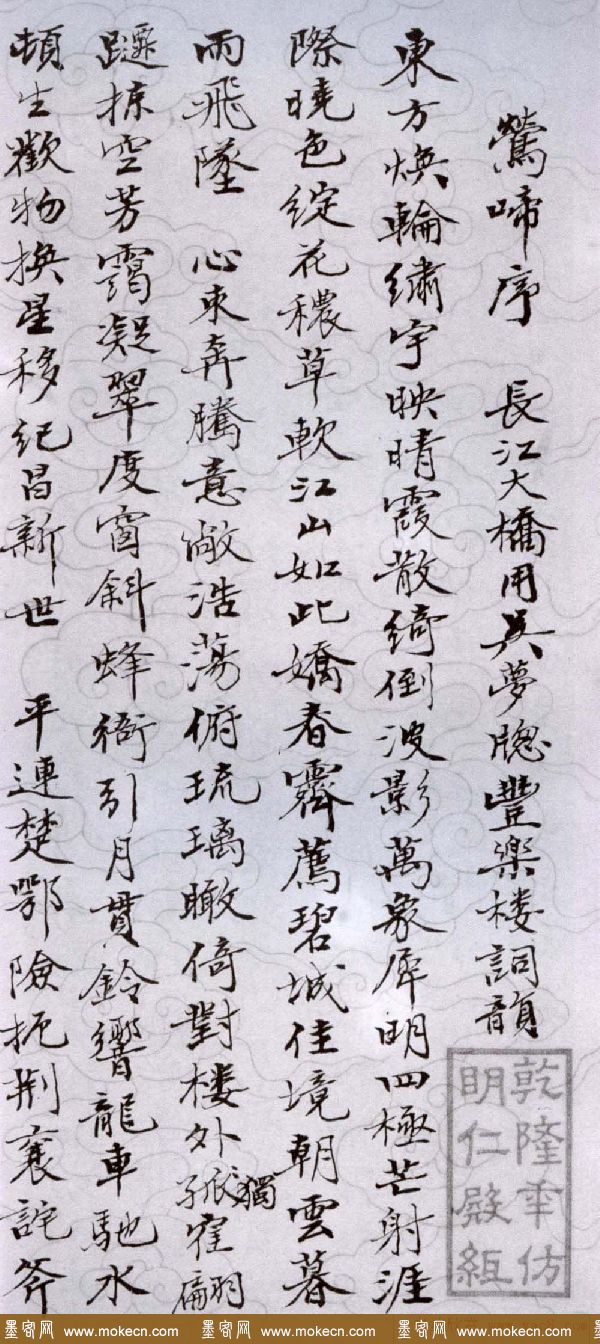 墨客网 www.mokecn.com 墨客网 www.mokecn.com 墨客网 www.mokecn.com
鶯啼序 長江大橋用吳夢牕豐樂楼詞韻
東方煥輪繡宇映晴霞散綺倒波影萬象犀明四極芒射涯
際曉色綻花穠草軟江山如此嬌春霽薦碧城佳境朝雲暮
雨飛墜 心束奔騰意敞浩蕩俯琉璃瞰倚對楼外孤獨隺翩
躚掠空芳靄凝翠度窗斜蜂衙引月貫鈴響龍車馳水
頓生歡物換星移紀昌新世 平連楚鄂險扼荆襄詫斧
乾隆年仿
明仁殿紙
墨客网 www.mokecn.com 墨客网 www.mokecn.com 墨客网 www.mokecn.com